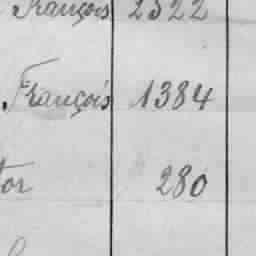 François 2322
François 1384
tor 280